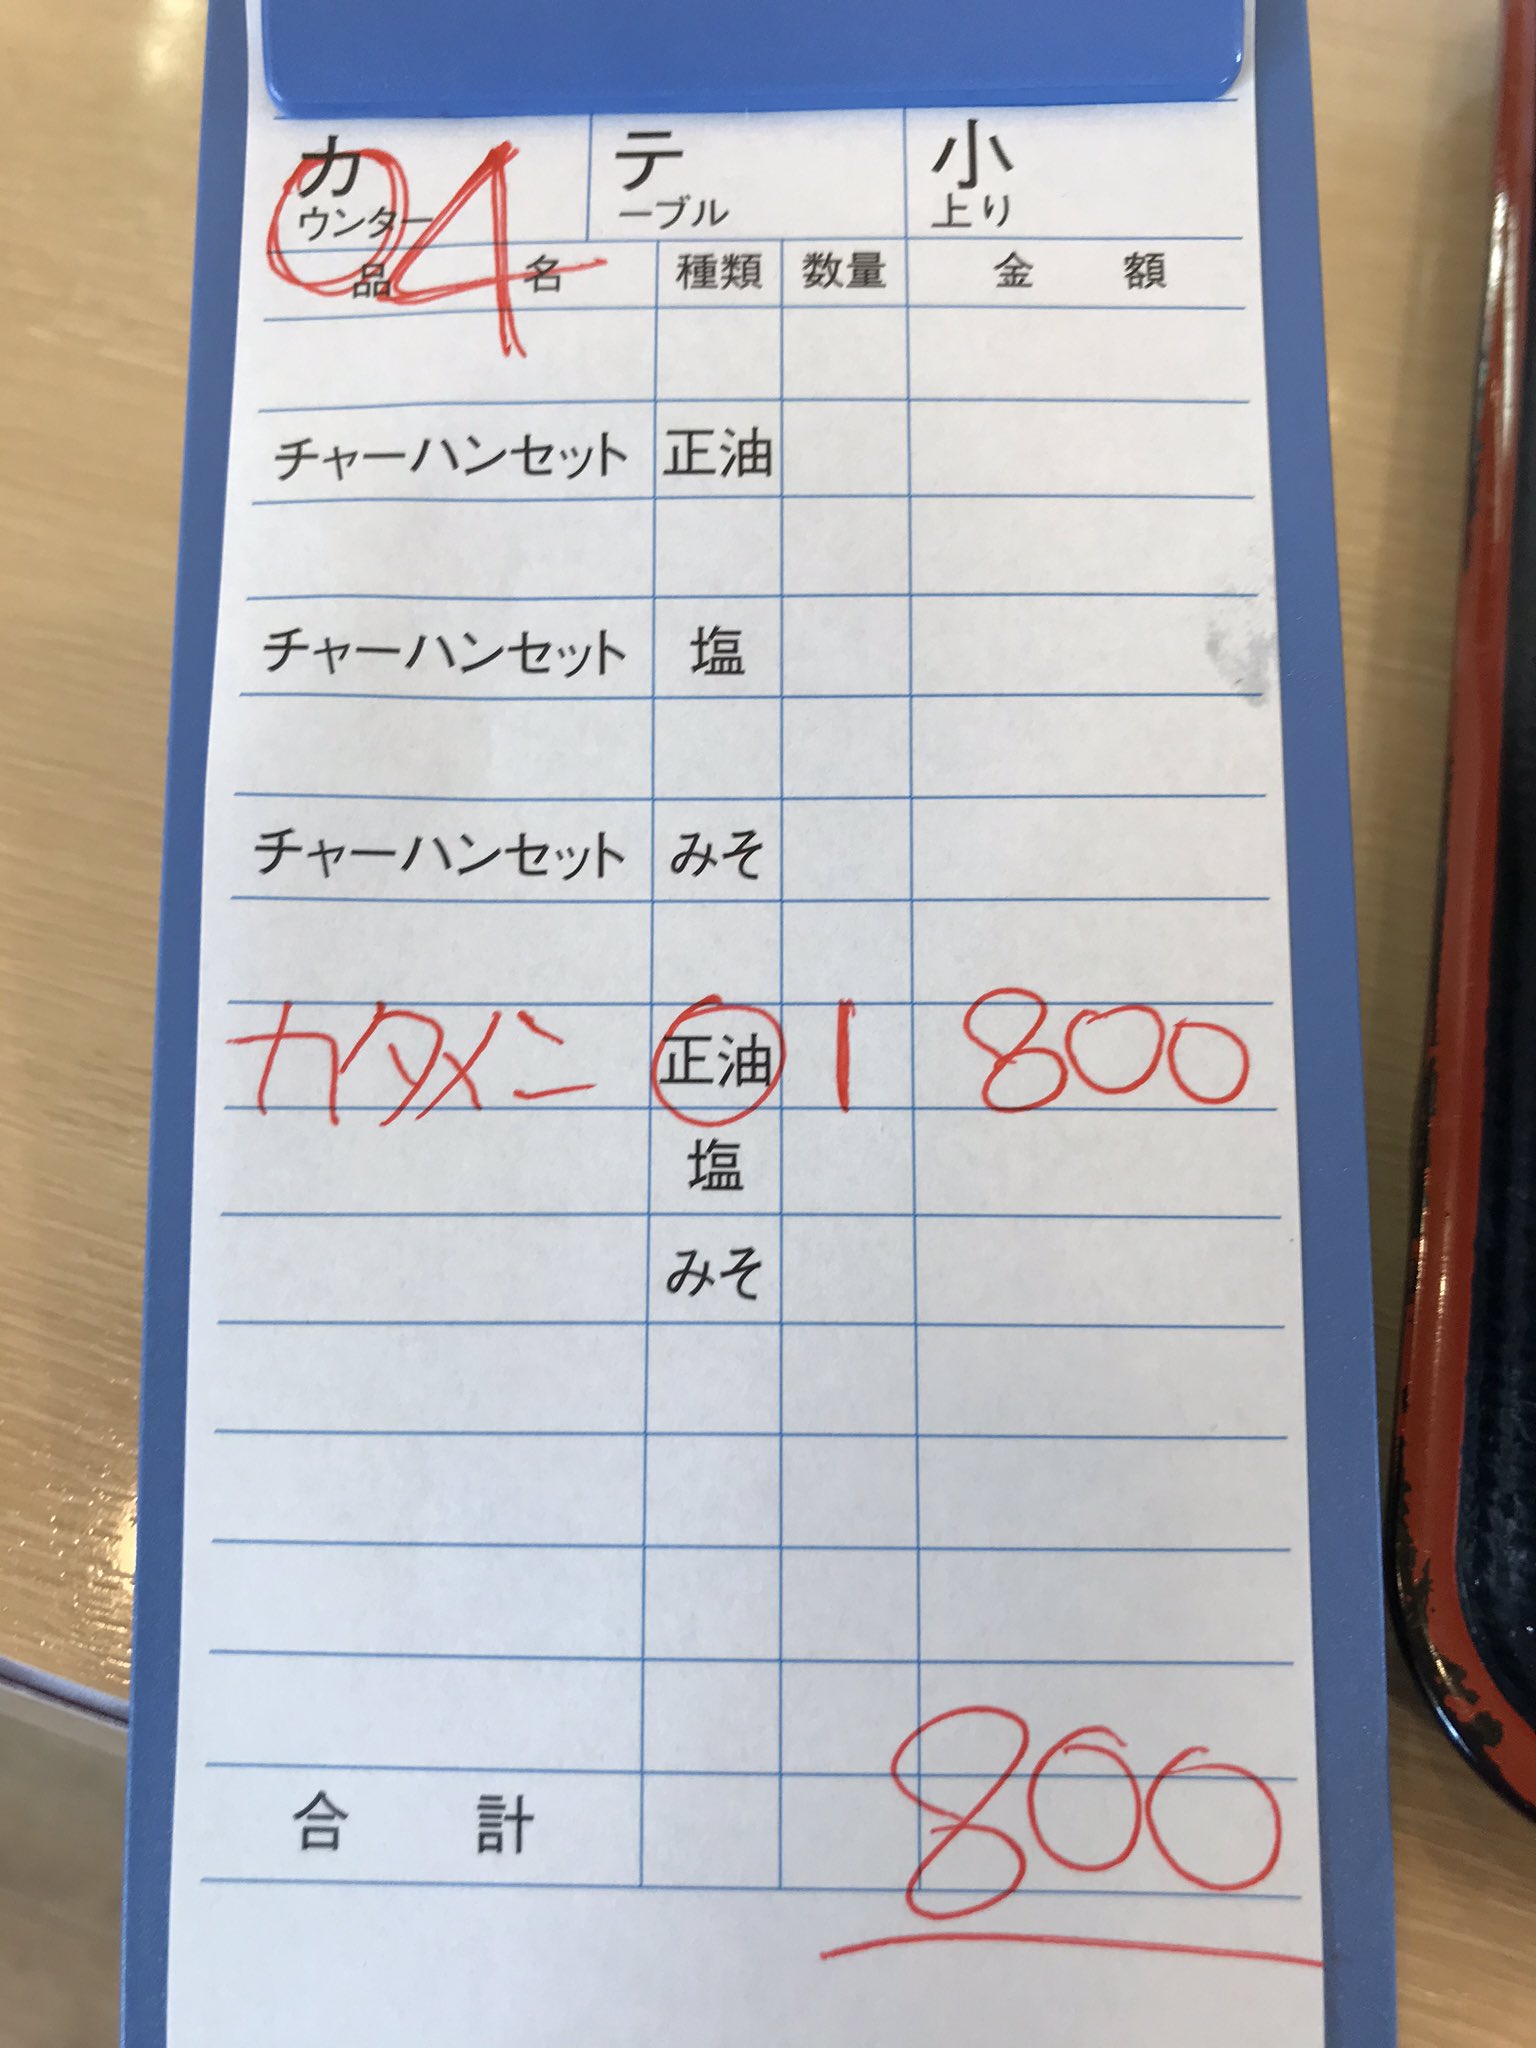 カウンター 4 テーブル 小上り
品名 種類 数量 金額
チャーハンセット 正油
チャーハンセット 塩
チャーハンセット みそ
カタメン 正油 1 800
塩
みそ
合計 800